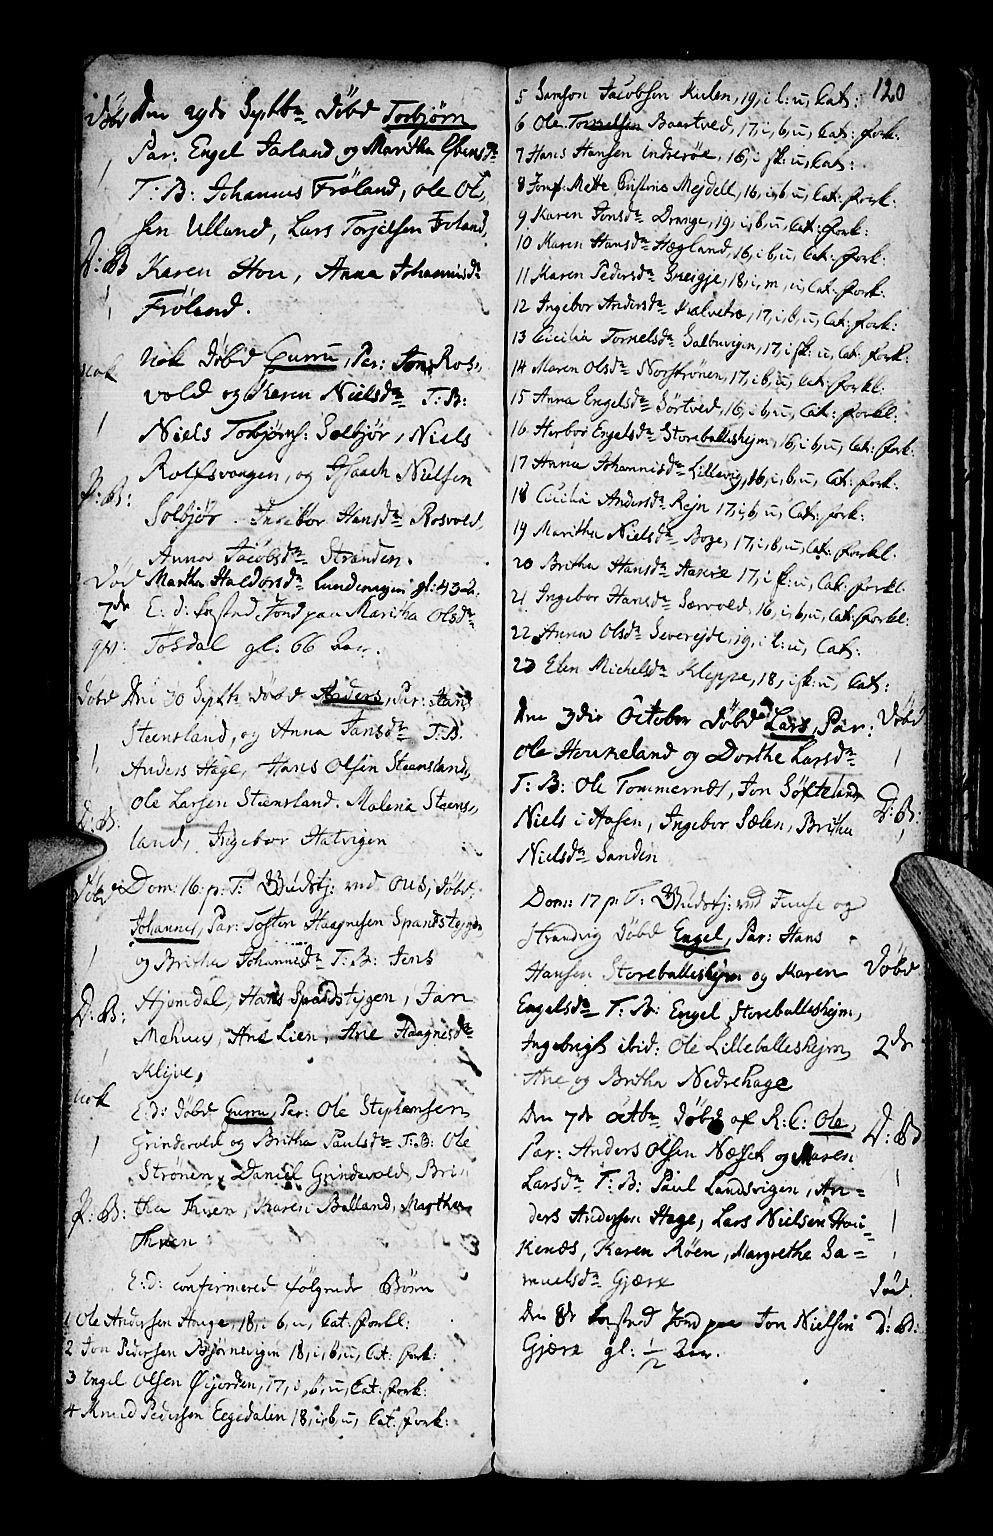 Døbd Den 29de Septbr Døbd Torbjørn
Par: Engel Føeland og Maritha
T: B: Johannes Frøland, Ole Ol,
sen Ulland, Lars Torjelsen Frøland,
D: B Karen Hou, Anna Johannisdr
Frøland.
Nok Nok Døbd Gurru, Par: Jon Ros,
vold og Karen Nielsdr T: B:
Niels Torbjørns: Solbjør, Niels
Rolfsvogen, og Isaach Nielsen
D: B: Solbjør. Ingebor Hansdr Rosvold,
Anna Jacobsdr Stranden.
Død Martha Haldorsdr Lundervigen gl: 43 a.
2de E: d: kasted Jord paa Maritha Olsdr
qvi: Tøsdal gl: 66 Aar.
Døbd Dni 30 Septbr Døbd Anders, Par: Hans
Steensland, og Anna Jansdr T: B:
Anders Hage, Hans Olsen Steensland,
D: B: Ole Larsen Steensland. Malena Steens,
land, Ingebor Hatvigen
Døbd Dom: 16: p: T: Gudstj: ved Ous, Døbd
Johannes, Par: Tosten Haagnesen Spandstygen
og Britha Johannisdr T: B: Jens
D: B: Hjemdal, Hans Spandstygen, Jan
Mehuus, Ane Lien, Ane Haagnisdr
Klyve,
Nok E: d: Døbd Gurru, Par: Ole Stephansen
Grindevold og Britha Paulsdr T: B: Ole
Strønen, Daniel Grindevold, Bri,
D: B: tha Thuen, Karen Balland, Martha
Thuen
E: d: confirmered følgende Børn
1 Ole Andersen Hauge, 18, i b, u, Cat. forkl:
2 Jon Pedersen Bjørnevigen 18, i, b, u, Cat: fork:
3 Engel Olsen Øejorden, 17, i, b, u, Cat: fork:
4 Knud Pedersen Eegedalen 18, i b, u, Cat: fork:
120
5 Samson Jacobsen Kulen, 19, i l: u, Cat:
6 Ole Tornelsen Baartved, 17, i, b, u, Cat: fork:
7 Hans Hansen Indrerøe, 16, i sk: u, Cat:
8 Jomf: Mette Cristine Mejdell, 16, i, b u, Cat: fork:
9 Karen Jonsdr Drange, 19, i, b, u, Cat: fork:
10 Karen Hansdr Hegland, 16, i b, u, Cat: fork:
11 Maren Pedersdr Sneigje, 18, i, m, u, Cat: fork:
12 Ingebor Andersdr Kalvetræ, 17, i, b, u, Cat: fork:
13 Cicilia Tornelsdr Salbuvigen, 17, i sk: u, Cat: fork:
14 Maren Olsdr Norstrønen, 17, i b, u, Cat: forkl:
15 Anna Engelsdr Sørtved, 16, i b, u, Cat: forkl:
16 Herbor Engelsdr Storeballeshejm, 16, i, b, u, Cat: fork:
17 Anna Johannisdr Lillevig, 16, i, b, u, Cat: fork:
18 Cicilia Andersdr Rejn 17, i, b, u, Cat: fork:
19 Maritha Nielsdr Boge, 17, i, b, u, Cat: forkl:
20 Britha Hansdr Aasere 17, i sk: u, Cat: forkl:
21 Ingebor Hansdr Særvold, 16, i, b, u, Cat: forkl:
22 Anna Olsdr Severejde, 19, i l: u, Cat:
23 Elen Michelsdr Kleppe, 18, i sk: u, Cat:
Den 3die October Døbd Lars, Par: Døbd
Ole Haukeland og Dorthe Larsdr
T: B: Ole Tommernæs, Jon Søfteland D: B:
Niels i Hosen, Ingebor Sælen, Britha
Nielsdr Sanden
Dom: 17 p: T: Gudstj: ved Fuuse og
Strandvig Døbd Engel, Par: Hans
Hansen Storeballeshejm og Karen Døbd
Engelsdr T: B: Engel Storeballeshejm,
Ingebrigt ibid: Ole Lilleballeshejm 2de
Ane og Britha Nedrehage
Den 7de Octbr Døbd af R: C: Ole,
Par: Anders Olsen Næset og Maren D: B
Larsdr T: B: Paul Landsvigen, An=
ders Andersen Hage, Lars Nielsen Hou=
kenæs, Karen Røen, Margrethe Sa=
muelsdr Gjære Død
Den 8de kasted Jord paa Jon Nielsen D: B:
Gjære gl: 1/2 Aar.